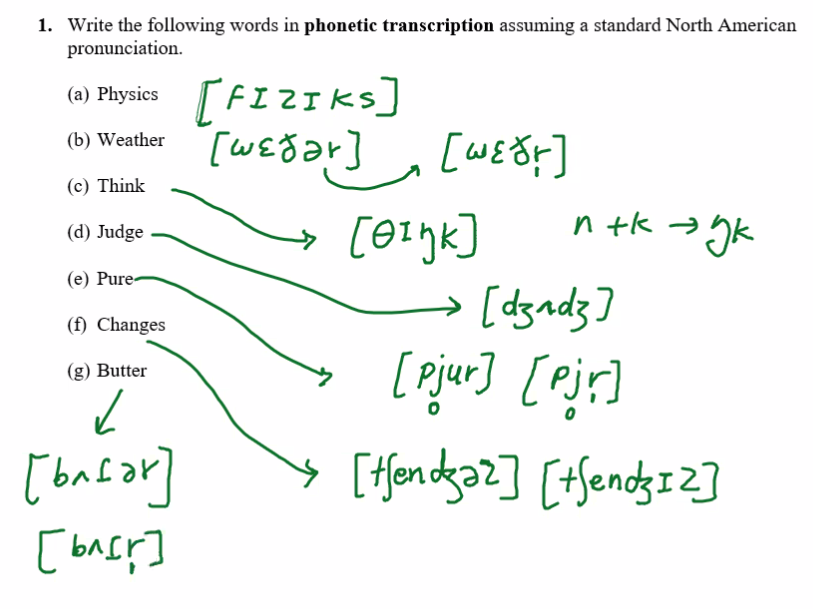 1. Write the following words in phonetic transcription assuming a standard North American
pronunciation.
(a) Physics [fɪzɪks]
(b) Weather [wɛðər] [wɛðr̩]
(c) Think [θɪŋk] n + k → ŋk
(d) Judge [dʒʌdʒ]
(e) Pure [pj̥ur] [pj̥r̩]
(f) Changes [tʃendʒəz] [tʃendʒɪz]
(g) Butter
[bʌɾər]
[bʌɾr̩]